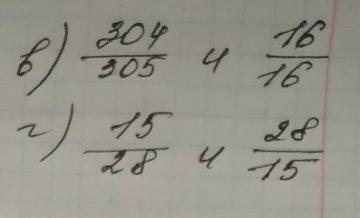 в) 304/305 и 16/16
г) 15/28 и 28/15